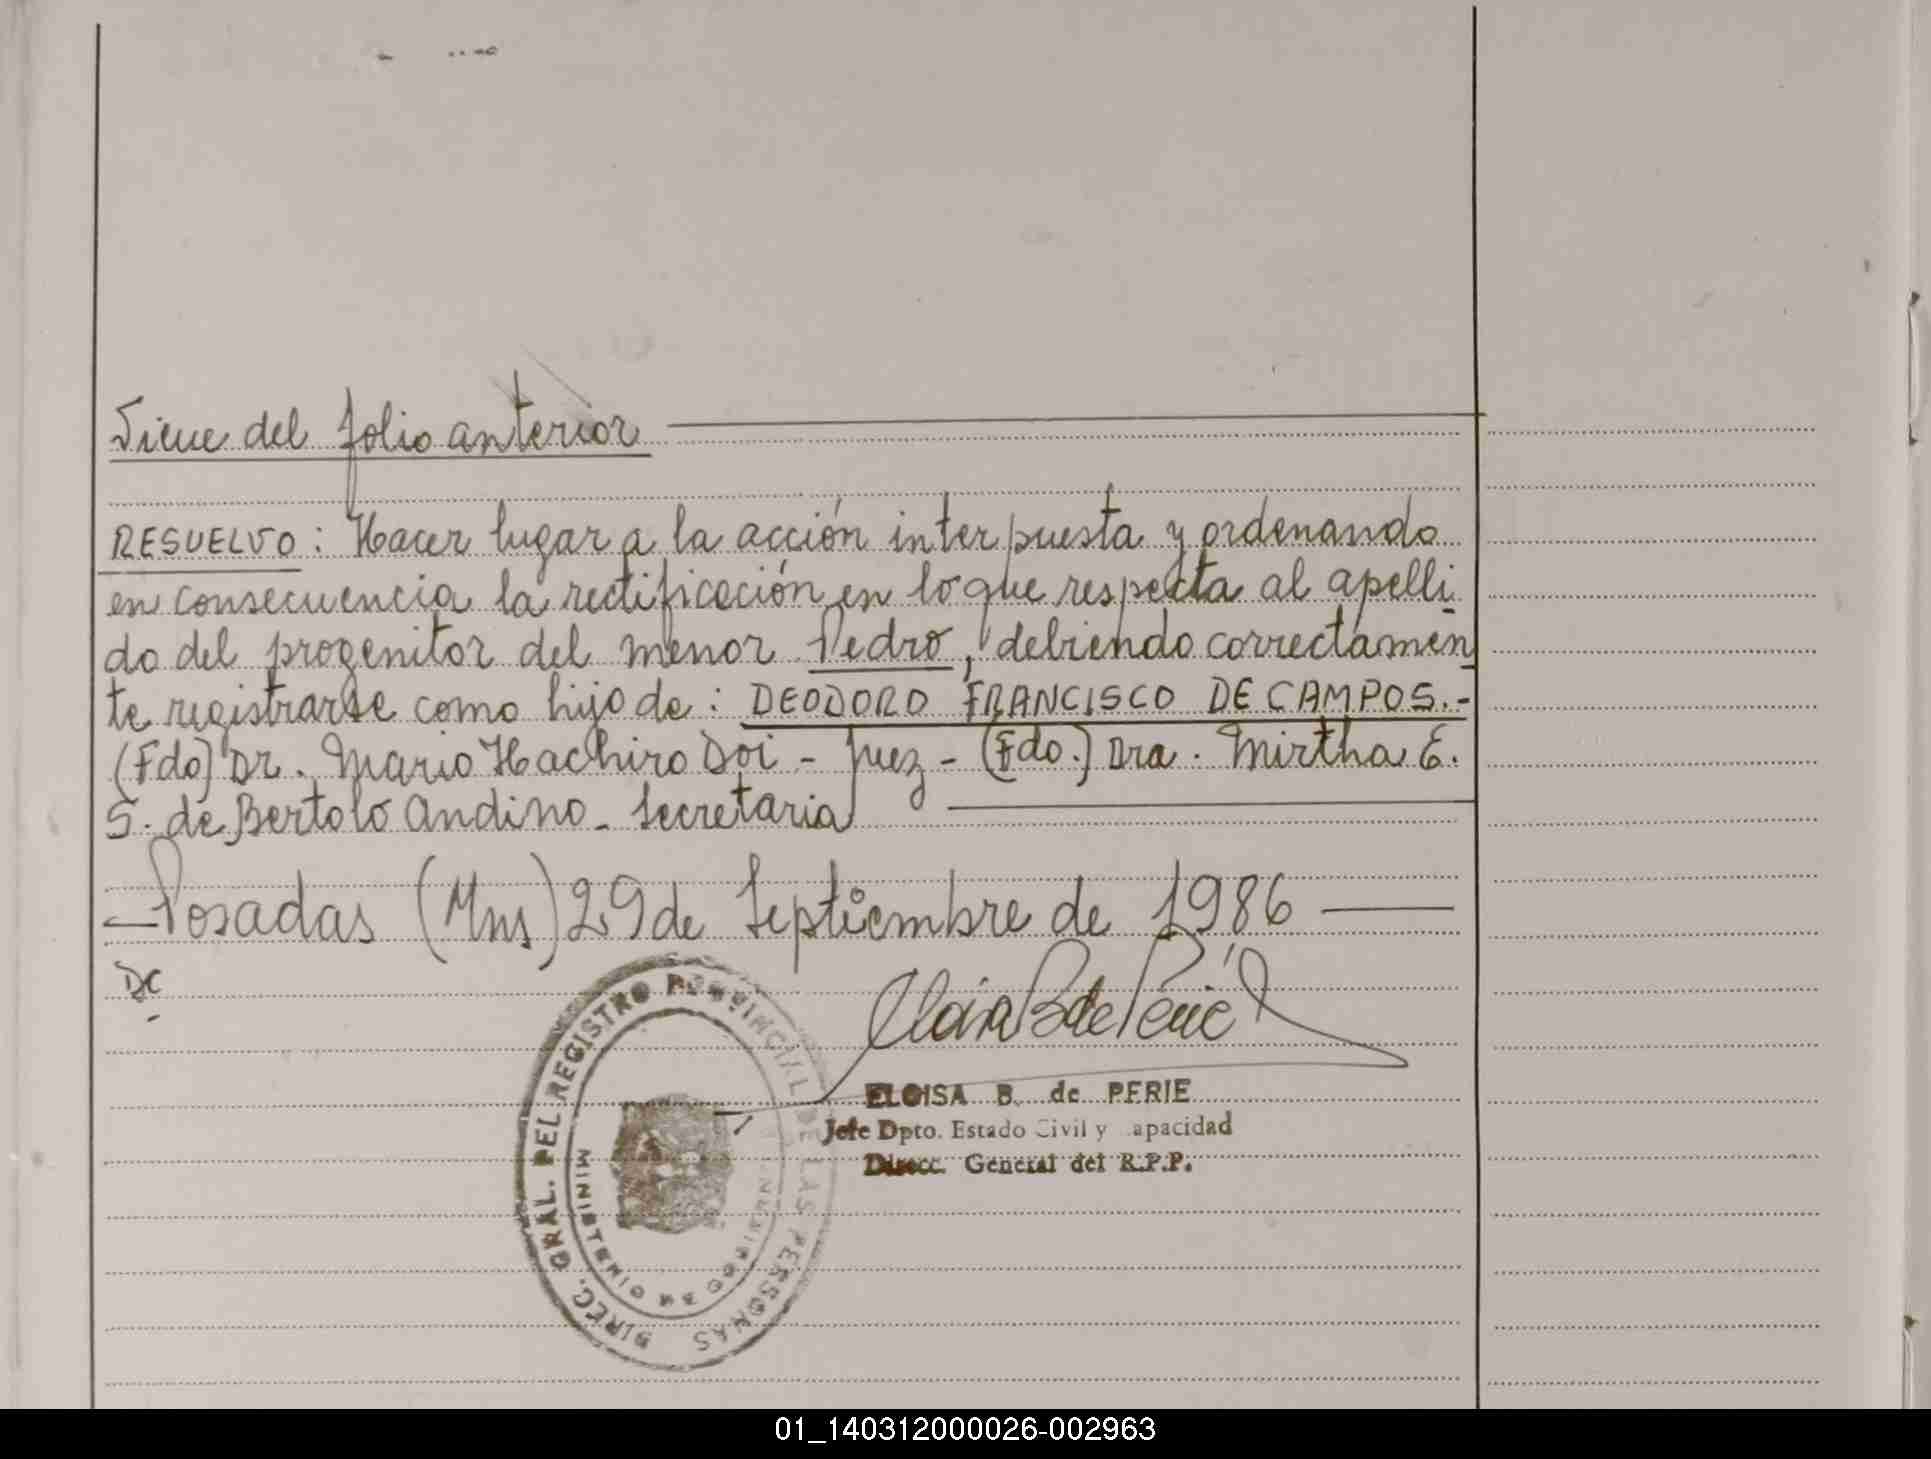 Viene del folio anterior
RESUELVO: Hacer lugar a la acción interpuesta y ordenando
en consecuencia la rectificación en lo que respecta al apelli
do del progenitor del menor Pedro, debiendo correctamen
te registrarse como hijo de: DEODORO FRANCISCO DE CAMPOS.-
(Fdo) Dr. Mario Hachiro Doi - Juez - (Fdo.) Dra. Mirtha E.
S. de Bertolo Andino - Secretaria
— Posadas (Mns) 29 de Septiembre de 1986 —
DC
DIREC. GRAL. DEL REGISTRO PROVINCIAL DE LAS PERSONAS
MINISTERIO DE
Eloisa B de Perié
ELOISA B. de PERIE
Jefe Dpto. Estado Civil y Capacidad
Direcc. General del R.P.P.
01_140312000026-002963